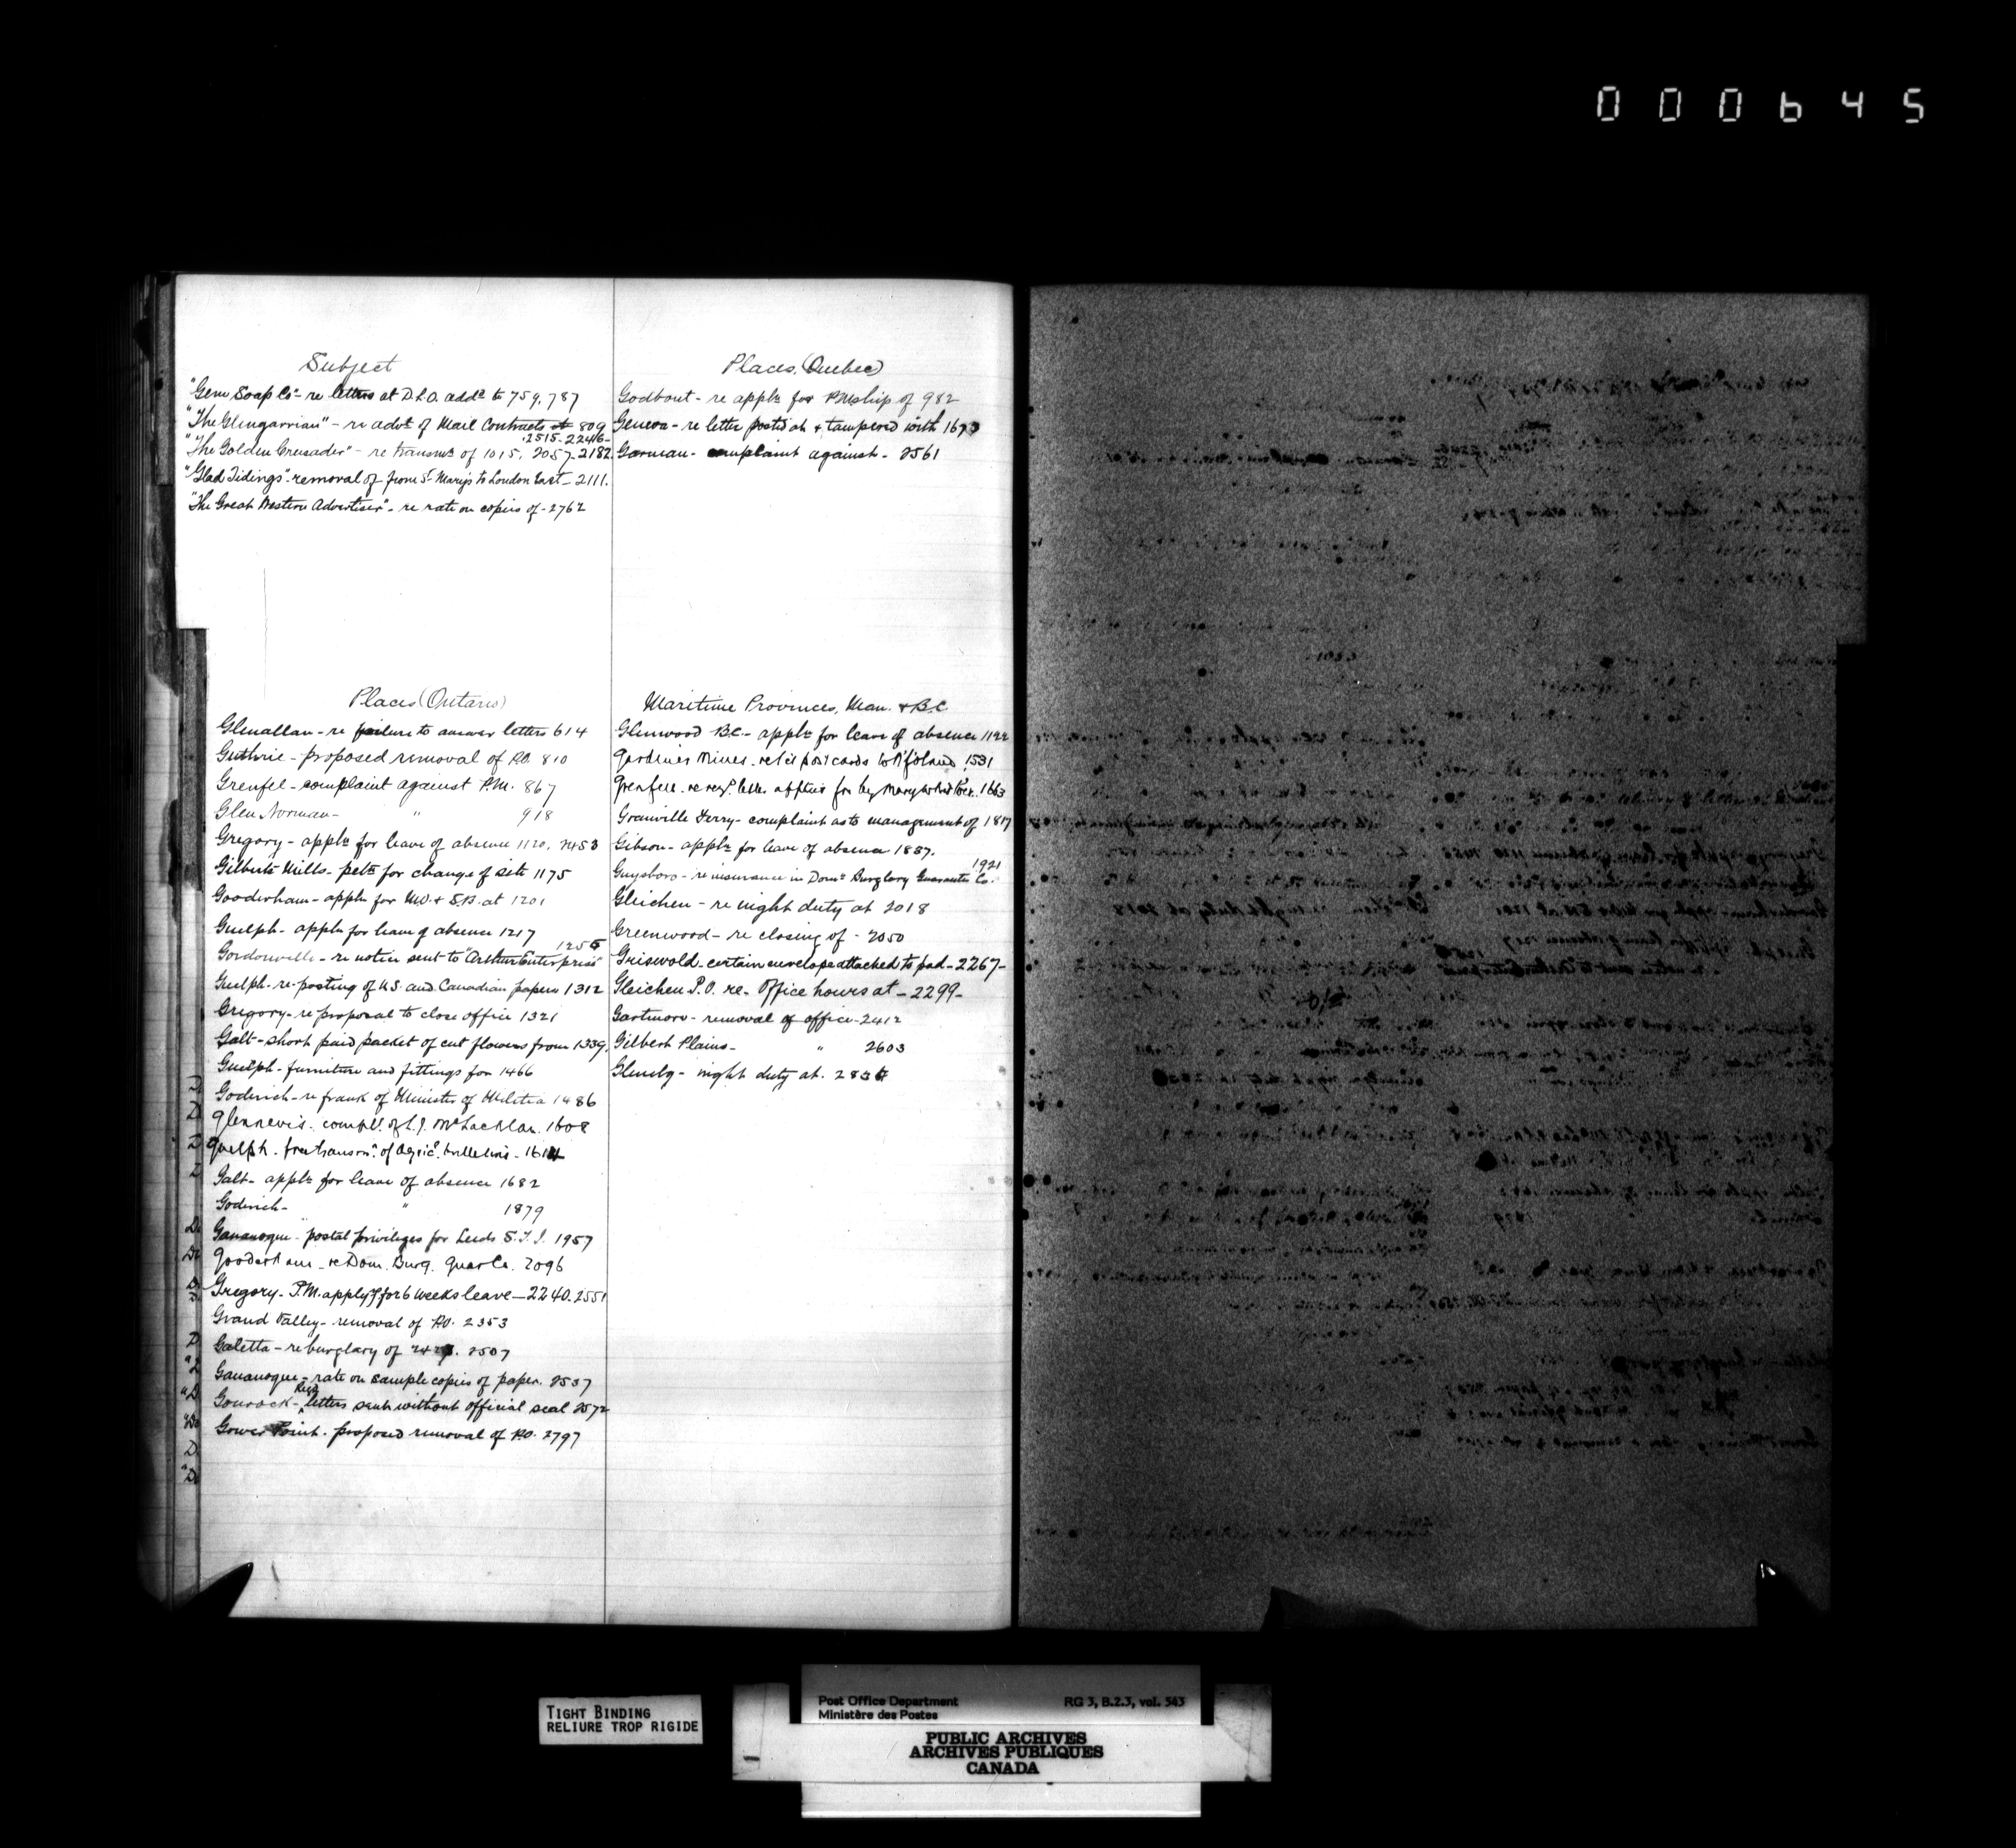 000645
Subject
"Gem Soap Co" - re letters at D.L.O. addd to 759, 787
"The Glengarrian" - re advt of Mail Contracts at 809
2515-2246-
"The Golden Crusader" - re transmn of 1015, 2057-2182
"Glad Tidings" - removal of from St Marys to London East - 2111.
"The Great Western Advertiser" - re rate on copies of - 2762
Places (Quebec)
Godbout - re appln for P.M.ship of 982
Geneva - re letter posted at & tampered with 1673
Gorman - complaint against - 2561
Places (Ontario)
Glenallan - re failure to answer letters 614
Guthrie - proposed removal of P.O. 810
Grenfel - complaint against P.M. 867
Glen Norman - " 918
Gregory - appln for leave of absence 1120, 2453
Gilberts Mills - petn for change of site 1175
Gooderham - appln for M.O. & S.B. at 1201
Guelph - appln for leave of absence 1217
Gordonville - re notice sent to "Arthur Enterprise" 1255
Guelph - re posting of U.S. and Canadian papers 1312
Gregory - re proposal to close office 1321
Galt - short paid packet of cut flowers from 1339.
Guelph - furniture and fittings for 1466
Goderich - re frank of Minister of Militia 1486
Glennevis. complt. of L.J. McLachlan. 1608
Guelph. free transmn. of Agricl. bulletins - 1614
Galt - appln for leave of absence 1682
Goderich - " 1879
Gananoque - postal privileges for Leeds S.F.I. 1957
Gooderham - re Dom. Burg. Guar Co. 2096
Gregory - P.M. applyg for 6 weeks leave - 2240. 2551
Grand Valley - removal of P.O. 2353
Galetta - re burglary of 2507
Gananoque - rate on sample copies of paper. 2537
Gourock - Regd letters sent without official seal 2572
Gower Point. proposed removal of P.O. 2797
Maritime Provinces, Man. & B.C.
Glenwood B.C. - appln for leave of absence 1122
Gardiner Mines - re post cards to N'f'dland 1531
Grenfell - re regd. letter applied for by 1663
Granville Ferry - complaint as to management of 1817
Gibson - appln for leave of absence 1887.
Guysboro - re insurance in Domn Burglary Guarantee Co. 1921
Gleichen - re night duty at 2018
Greenwood - re closing of - 2050
Griswold - certain envelope attached to pad - 2267 -
Gleichen P.O. re - Office hours at - 2299 -
Gartmore - removal of office - 2412
Gilbert Plains - " 2603
Glenelg - night duty at.
TIGHT BINDING
RELIURE TROP RIGIDE
Post Office Department RG 3, B.2.3, vol. 543
Ministère des Postes
PUBLIC ARCHIVES
ARCHIVES PUBLIQUES
CANADA